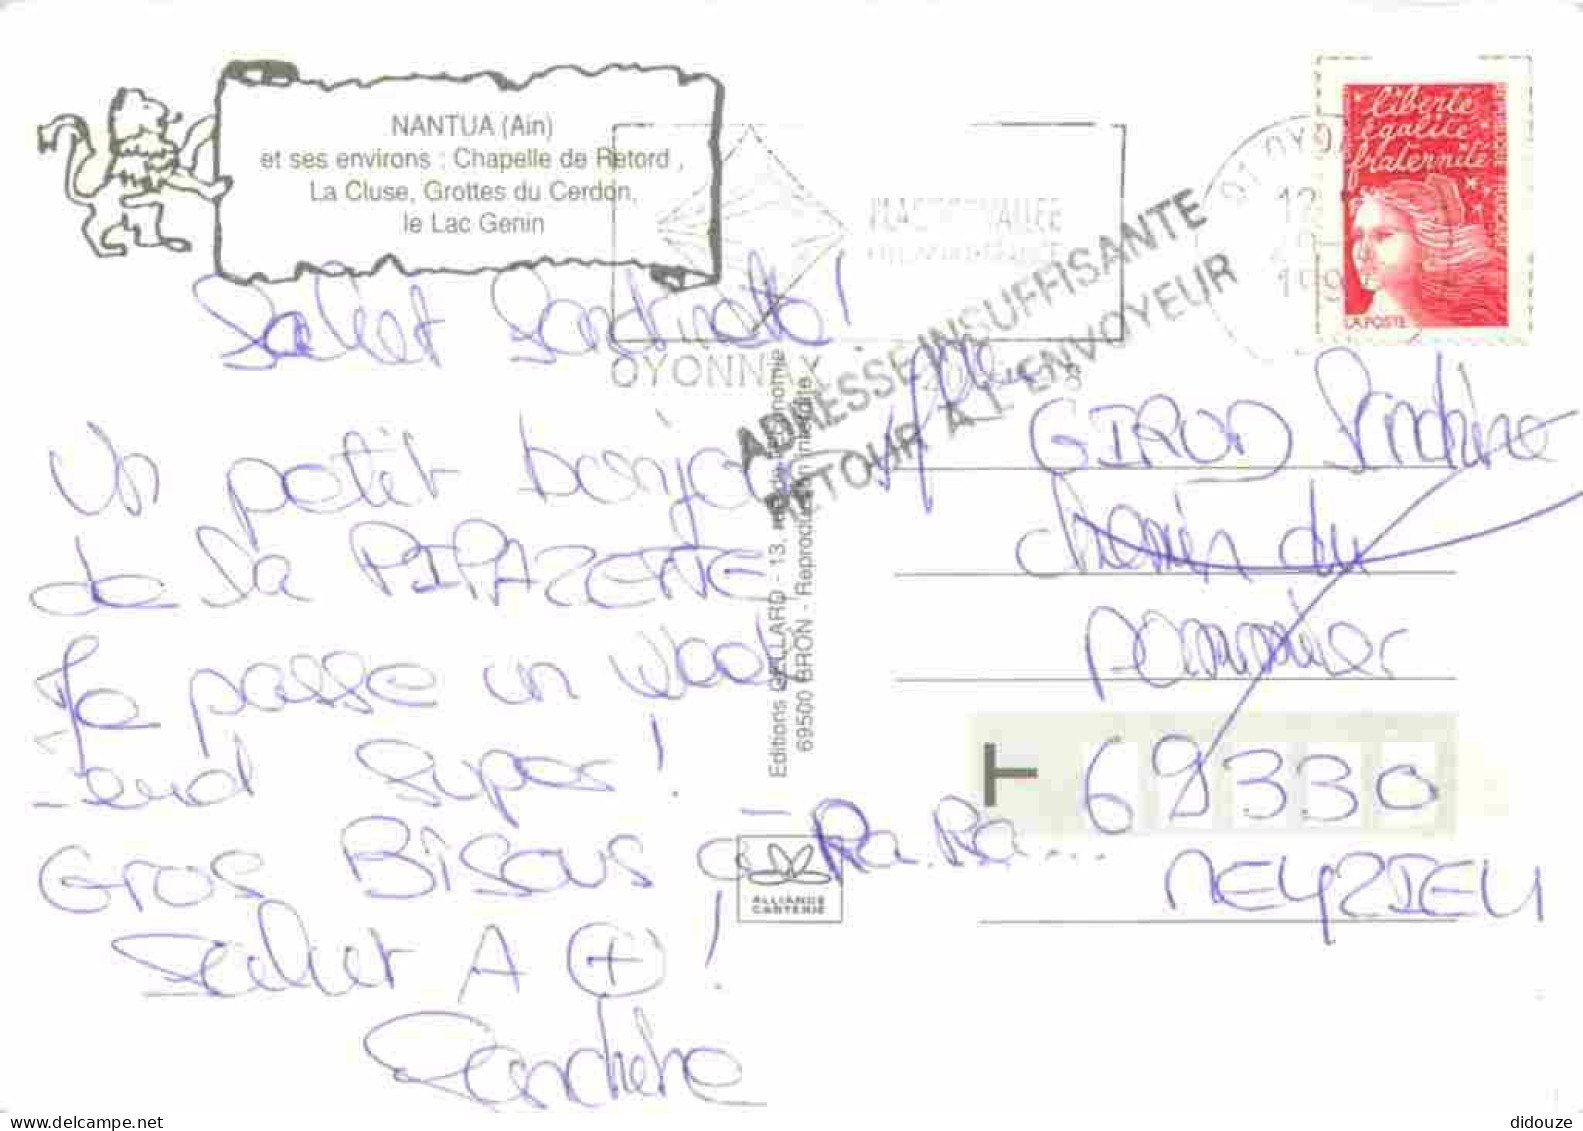 NANTUA (Ain)
et ses environs : Chapelle de Retord,
La Cluse, Grottes du Cerdon,
le Lac Genin
Salut Sandrinette!
Un petit bonjour
de la PIPAZETTE
Je passe un week
-end super!
GROS BISOUS à Ra.Ra...
Salut A +!
Sandrine
OYONNAX
ADRESSE INSUFFISANTE
RETOUR A L'ENVOYEUR
01 OYONNAX
liberté
égalité
fraternité
LA POSTE
Editions CELLARD - 13,
69500 BRON - Reproduction interdite
ALLIANCE
CARTERIE
Mlle
GIROD Sandrine
chemin du
pommier
T 69330
MEYZIEU
didouze